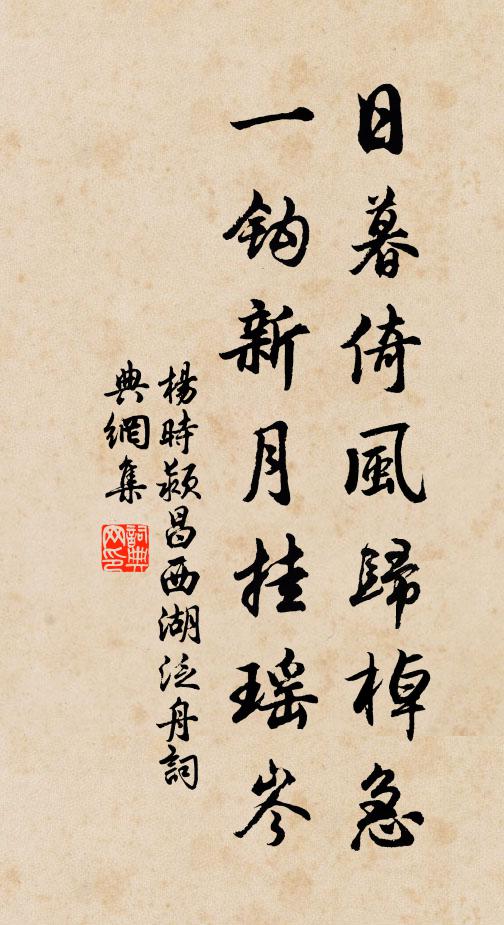 日暮倚風歸棹急
一鈎新月挂瑤岑
楊時潁昌西湖泛舟詞
典網集
詞典網印